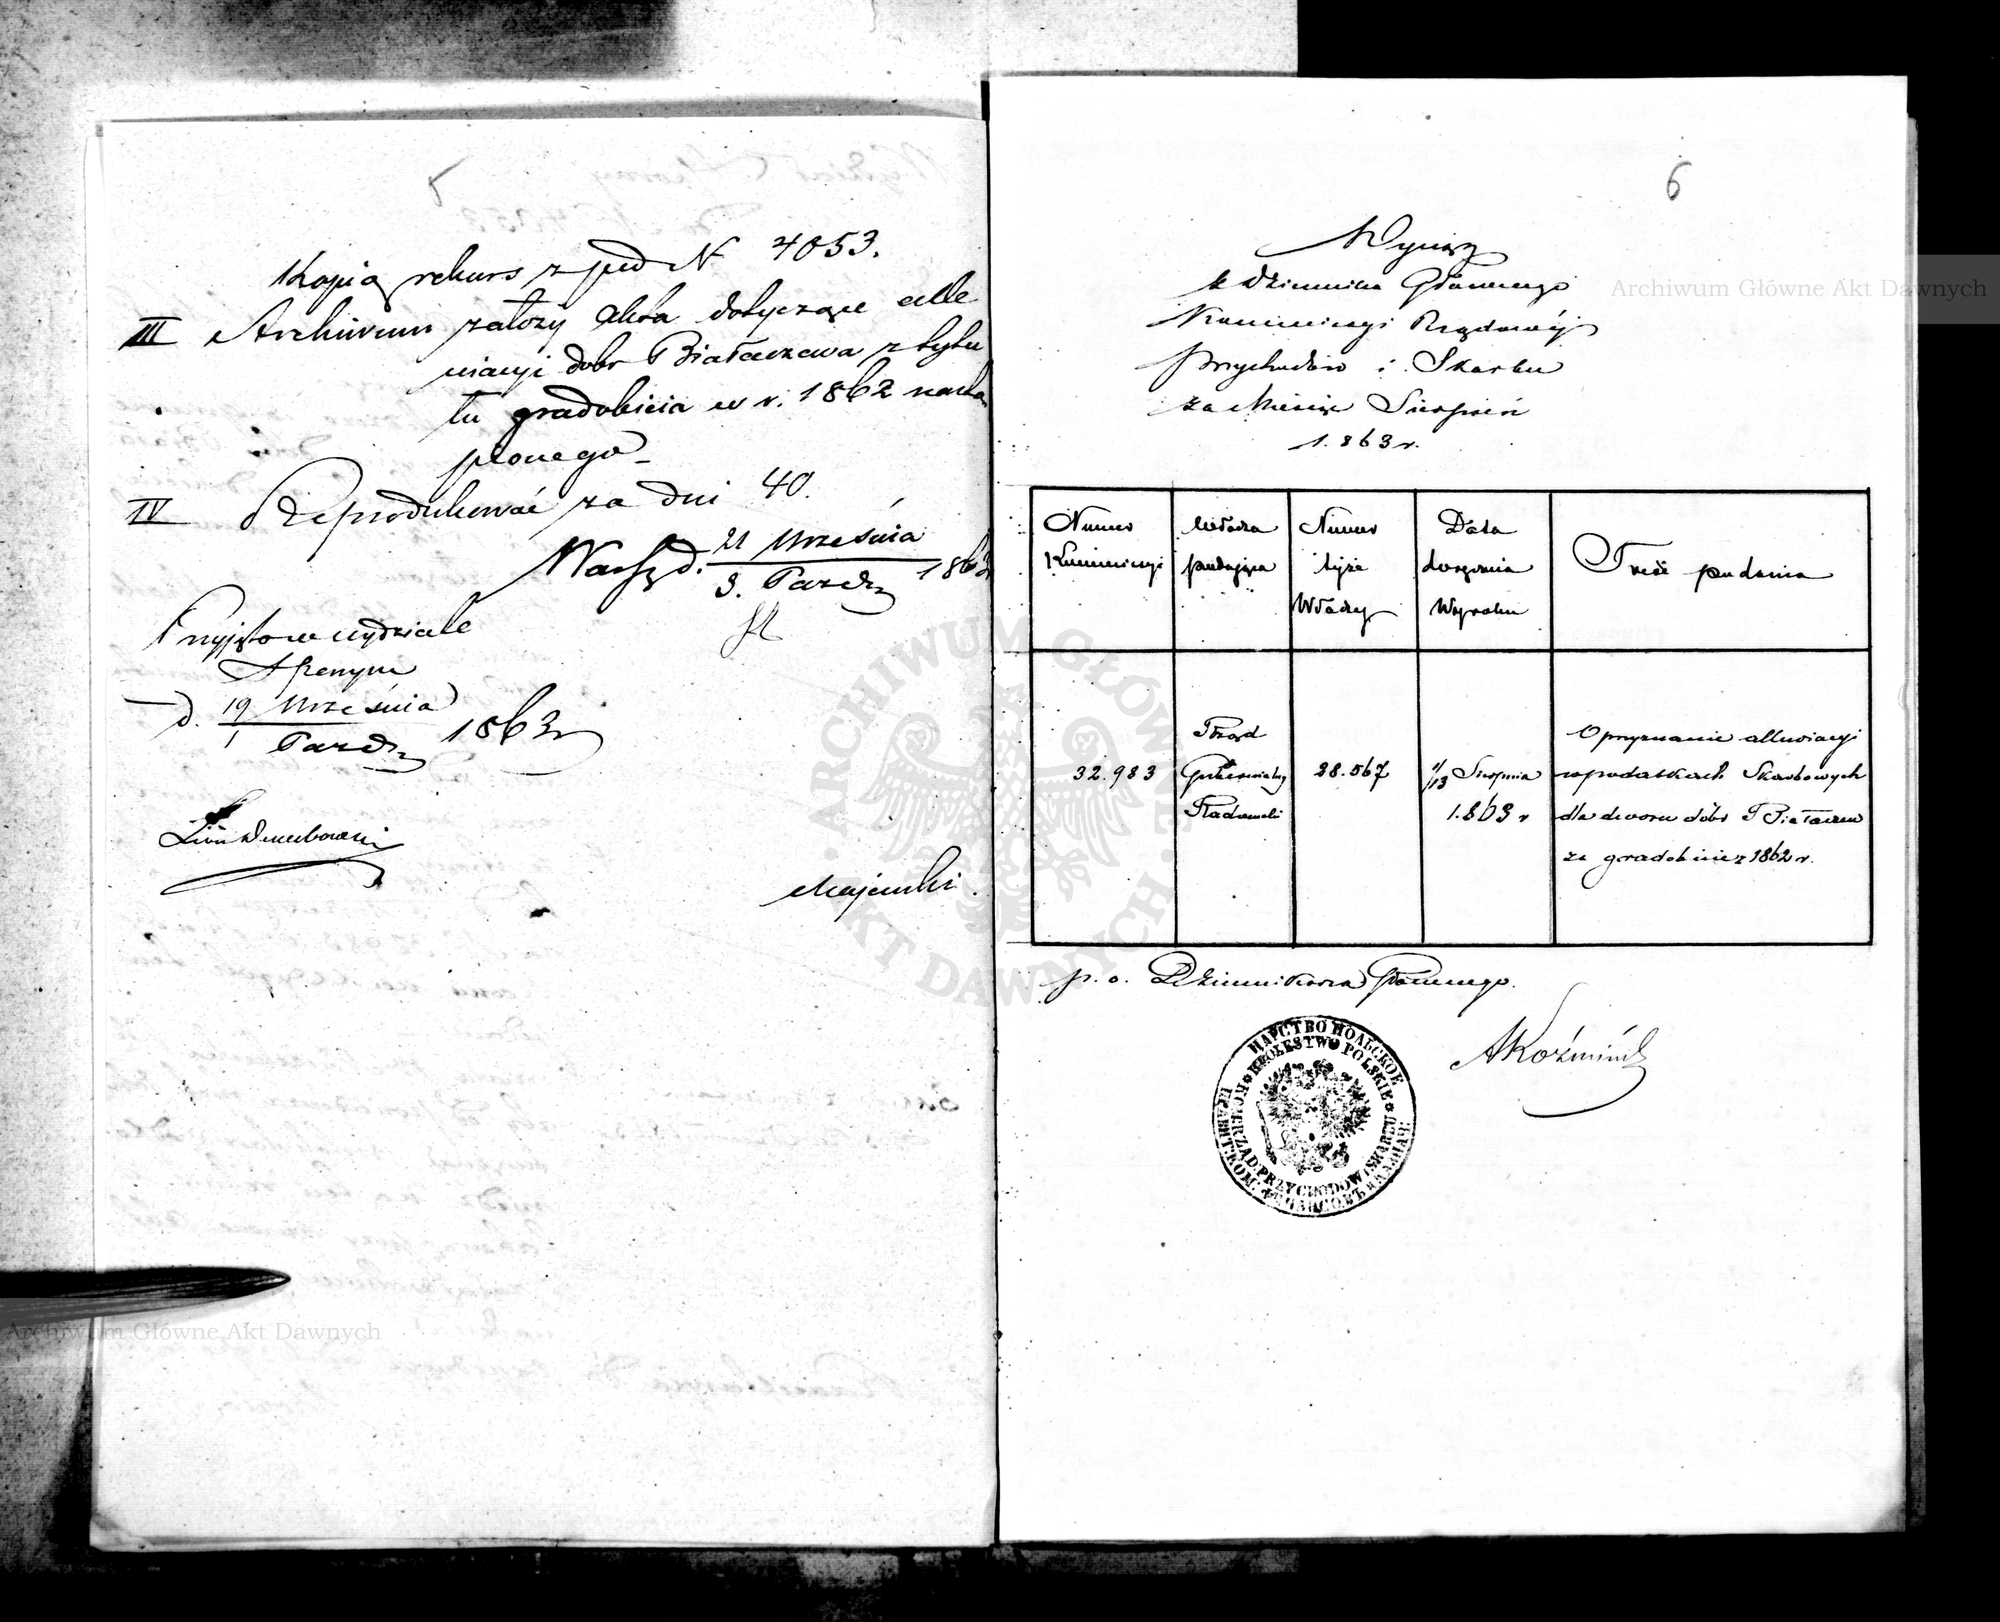 5
Kopią rekurs z pod N 4053.
III Archiwum założy akta dotyczące alle
wiacyi dobr Białaczewa z tytu
łu gradobicia w r. 1862 nastą
pionego
IV Reprodukować za dni 40.
Warsz. d. 21 Września
3. Paźdz 1863
Przyjęto w wydziale
Spornym
d. 19 Września
1 Paźdz 1863 r
Majewski.
6
Wyciąg
z Dziennika Głównego
Kommissyi Rządowéj
Przychodów i Skarbu
za Miesiąc Sierpień
1863 r.
Numer Kommissyi
Władza podająca
Numer tejże Władzy
Data doręczenia Wyroku
Treść podania
32.983
Rząd Gubernialny Radomski
28.567
1/13 Sierpnia 1863 r
O przyznanie allewiacyi
w podatkach Skarbowych
dla dworu dóbr Białaczew
za gradobicie z 1862 r.
p. o. Dziennikarza Głównego.
AKoźmiński
ЦАРСТВО ПОЛЬСКОЕ
KROLESTWO POLSKIE
KOM: RZĄD: PRZYCHODOW I SKARBU
ARCHIWUM GŁÓWNE AKT DAWNYCH
Archiwum Główne Akt Dawnych
Archiwum Główne Akt Dawnych